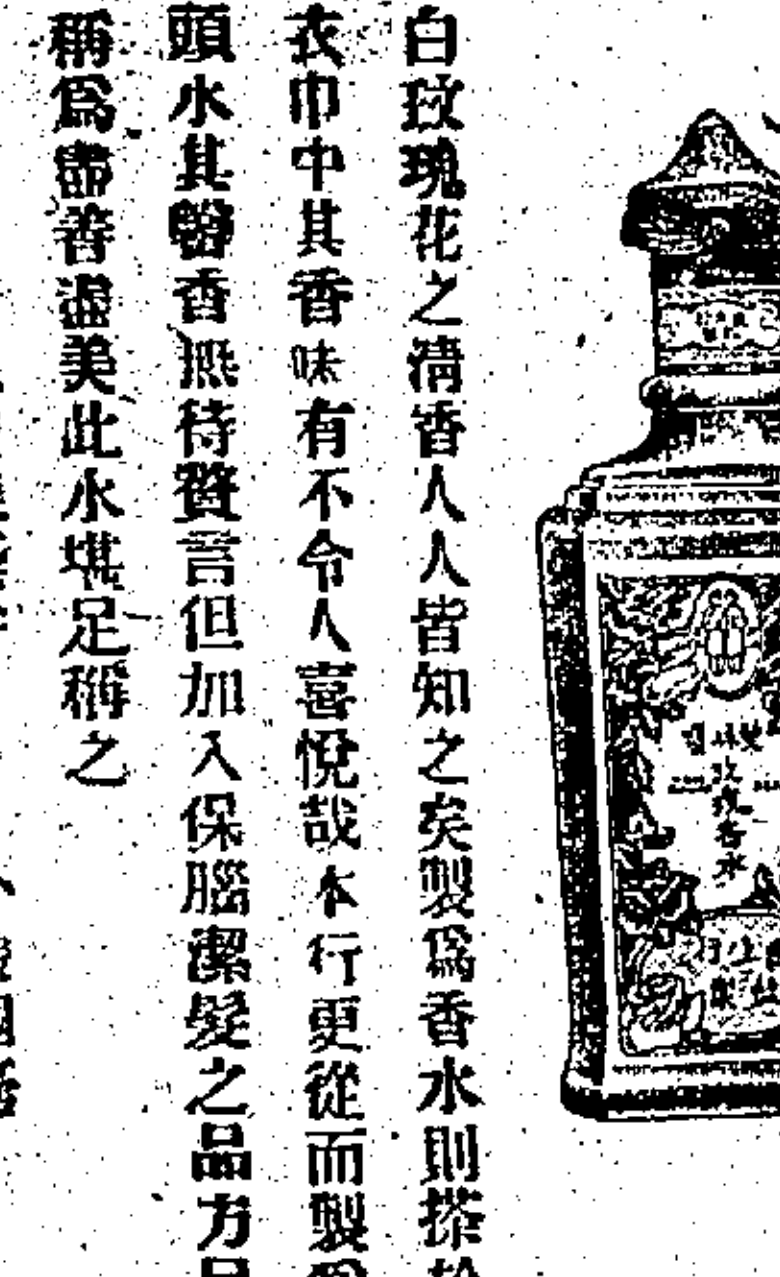 白玫瑰花之清香人人皆知之矣製為香水則搽於
衣巾中其香味有不令人喜悅哉本行更從而製為
頭水其馨香無待贅言但加入保腦潔髮之品方
稱為盡善盡美此水堪足稱之
玫瑰香水